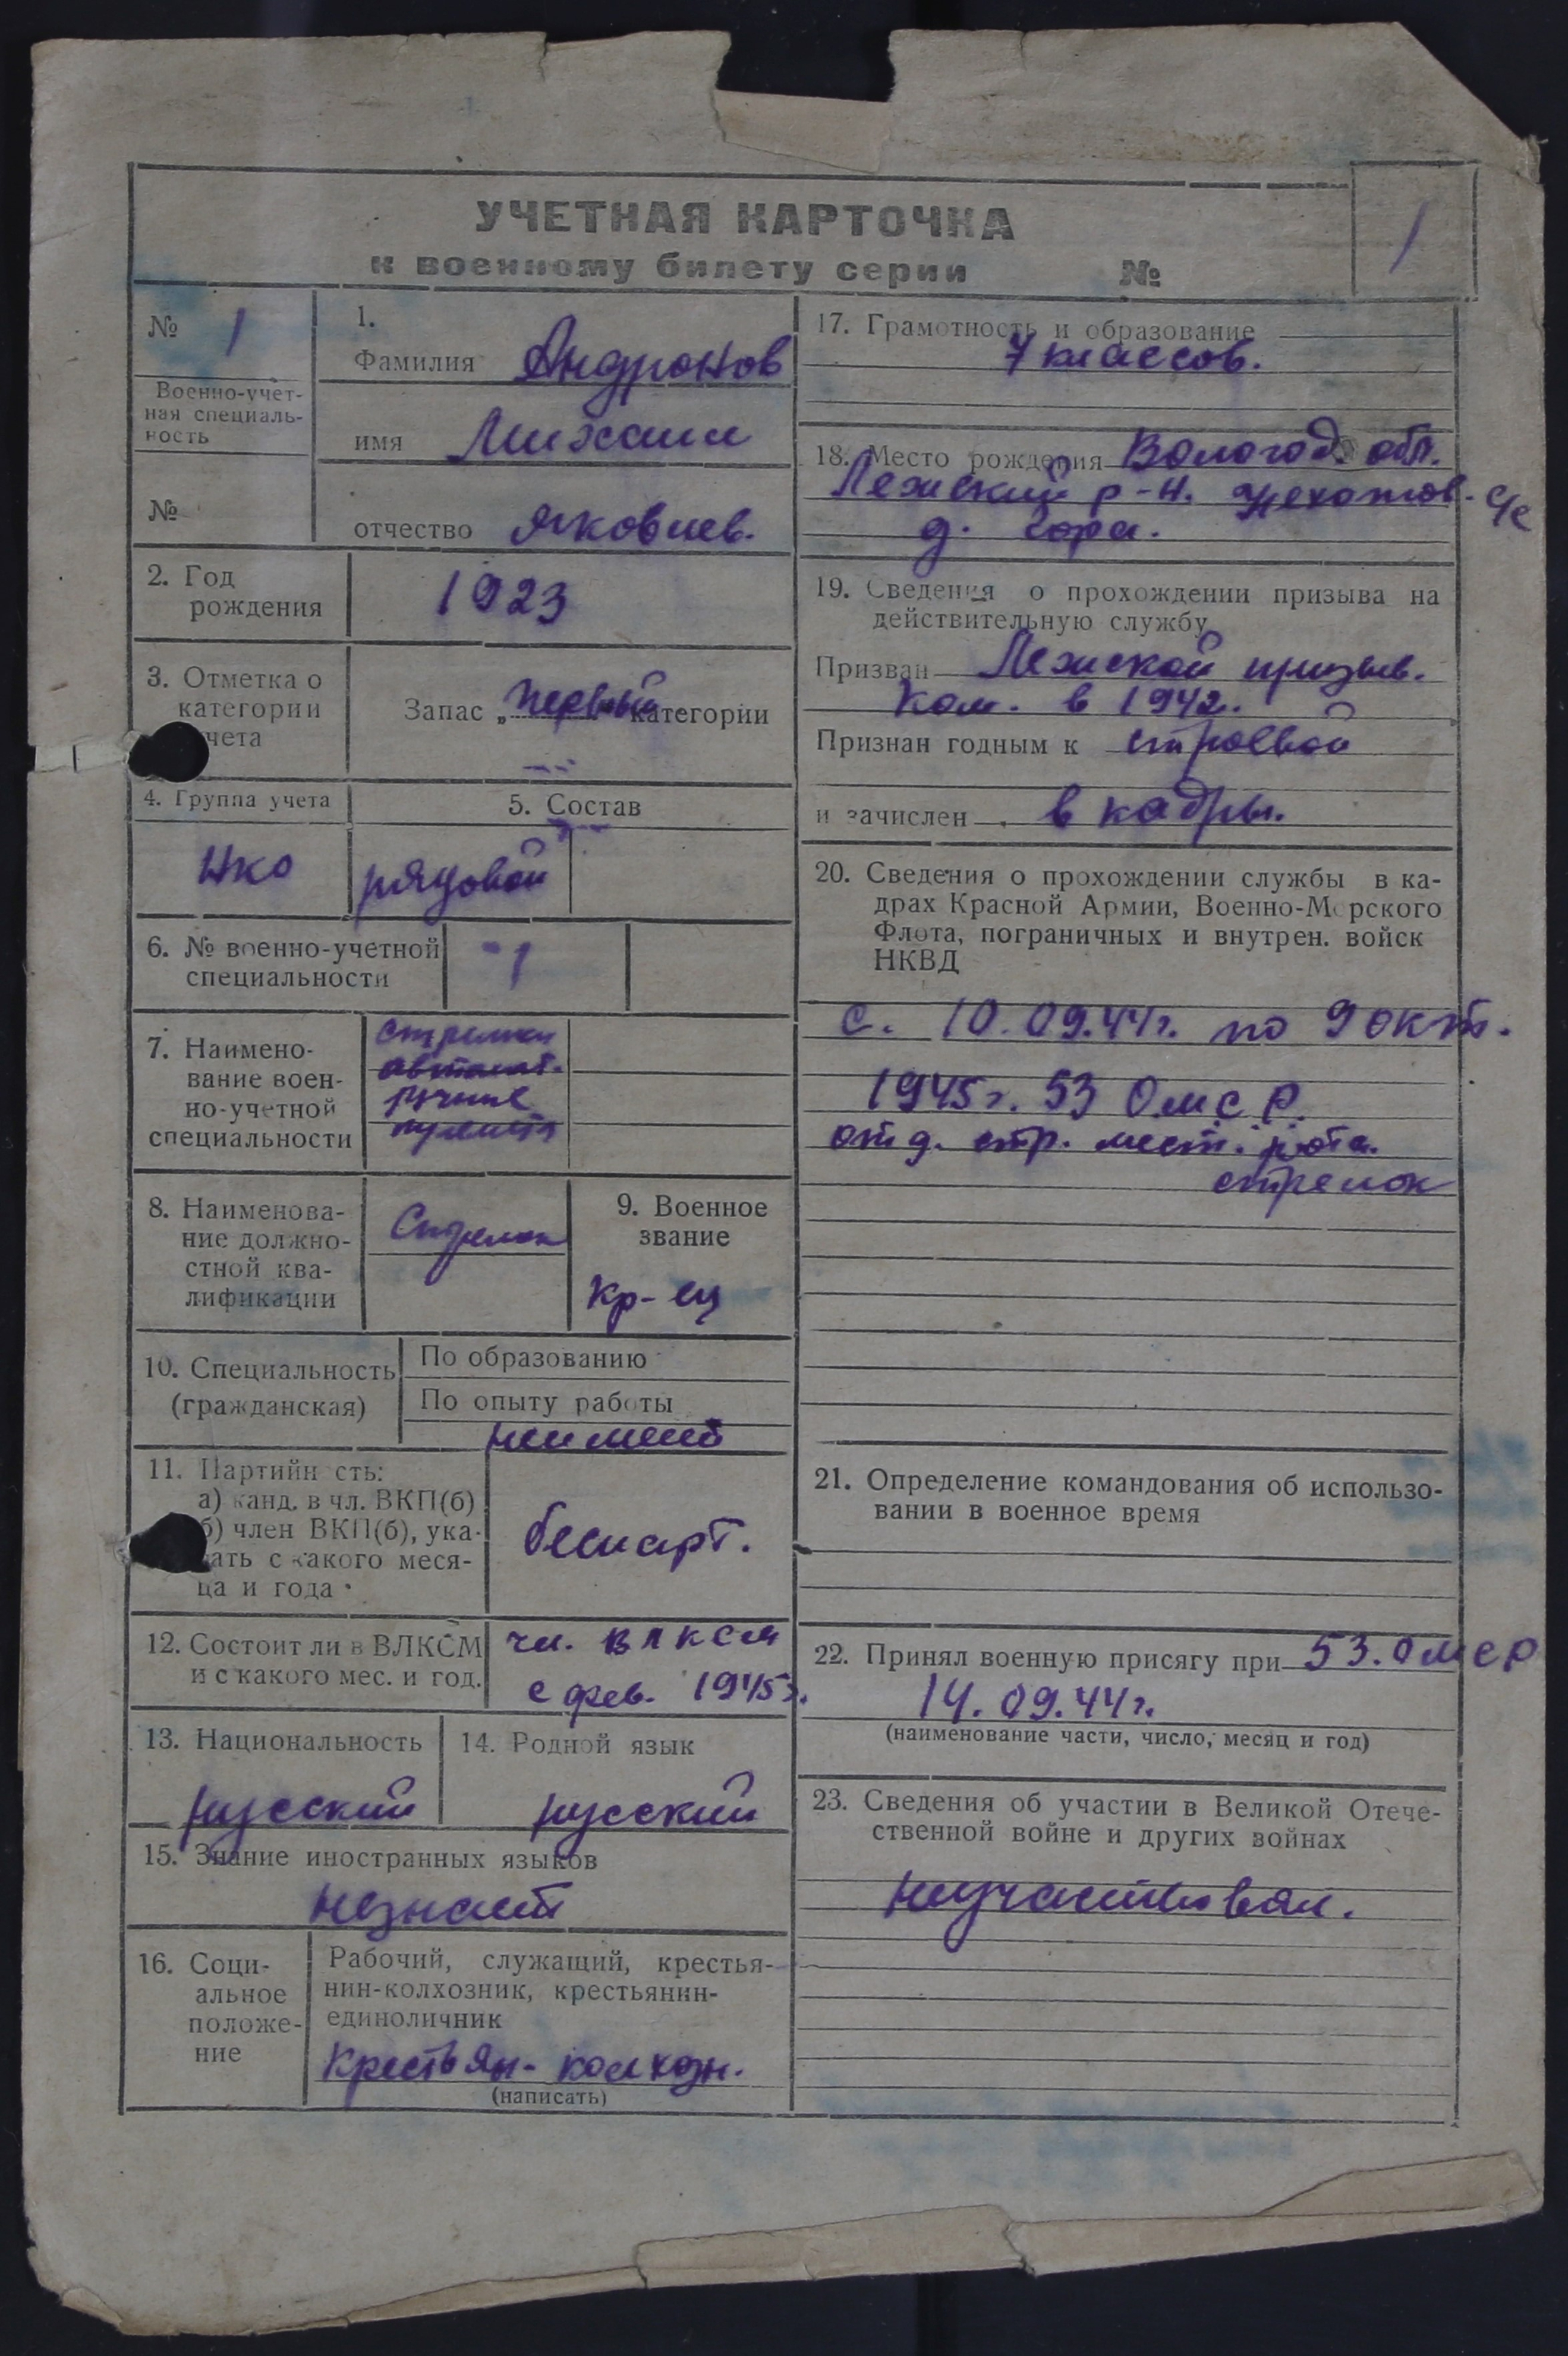 УЧЕТНАЯ КАРТОЧКА
к военному билету серии №
1
№ 1
Военно-учет-
ная специаль-
ность
№
1.
Фамилия Андронов
имя Михаил
отчество Яковлев.
2. Год
рождения
1923
3. Отметка о
категории
чета
Запас „первый" категории
4. Группа учета
нко
5. Состав
рядовой
6. № военно-учетной
специальности
-1
7. Наимено-
вание воен-
но-учетной
специальности
стрелки
автомат.
ручные
пулемет
8. Наименова-
ние должно-
стной ква-
лификации
Стрелок
9. Военное
звание
Кр-ец
10. Специальность
(гражданская)
По образованию
По опыту работы
неимеет
11. Партийн сть:
а) канд. в чл. ВКП(б)
б) член ВКП(б), ука-
ать с какого меся-
ца и года
беспарт.
12. Состоит ли в ВЛКСМ
и с какого мес. и год.
чл. ВЛКСМ
с фев. 1945г.
13. Национальность
русский
14. Родной язык
русский
15. Знание иностранных языков
незнает
16. Соци-
альное
положе-
ние
Рабочий, служащий, крестья-
нин-колхозник, крестьянин-
единоличник
Крестьян-колхозн.
(написать)
17. Грамотность и образование
7 классов.
18. Место рождения Вологод. обл.
Лежский р-н. с/с
д. Гора.
19. Сведения о прохождении призыва на
действительную службу
Призван Лежской призыв.
ком. в 1942.
Признан годным к строевой
и зачислен в кадры.
20. Сведения о прохождении службы в ка-
драх Красной Армии, Военно-Морского
Флота, пограничных и внутрен. войск
НКВД
с. 10.09.44г. по 9 окт.
1945г. 53 ОМСР.
отд. стр. мест. рота.
стрелок
21. Определение командования об использо-
вании в военное время
22. Принял военную присягу при 53. ОМСР
14.09.44г.
(наименование части, число, месяц и год)
23. Сведения об участии в Великой Отече-
ственной войне и других войнах
неучаствовал.